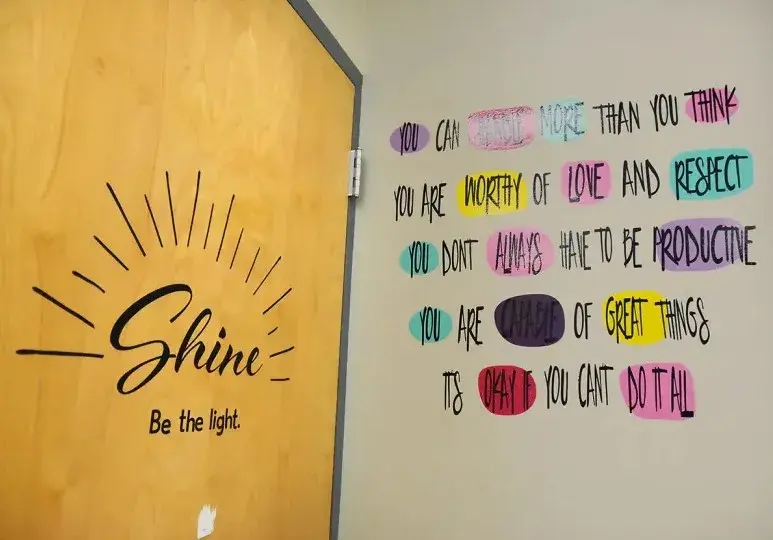 Shine
Be the light.
YOU CAN HANDLE MORE THAN YOU THINK
YOU ARE WORTHY OF LOVE AND RESPECT
YOU DONT ALWAYS HAVE TO BE PRODUCTIVE
YOU ARE CAPABLE OF GREAT THINGS
ITS OKAY IF YOU CANT DO IT ALL